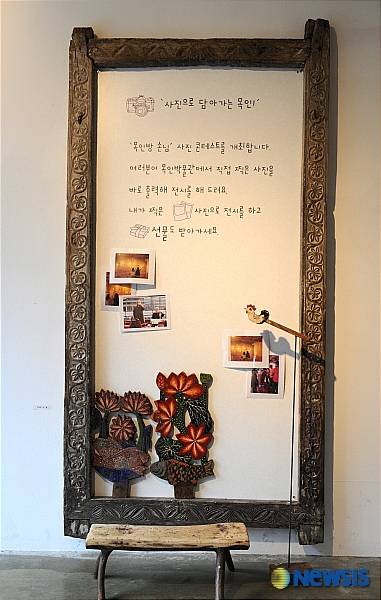 '사진으로 담아가는 목인!'
'목인방 손님' 사진 콘테스트를 개최합니다.
여러분이 목인박물관에서 직접 찍은 사진을
바로 출력해 전시를 해 드려요.
내가 찍은 사진으로 전시를 하고
선물도 받아가세요
NEWSIS